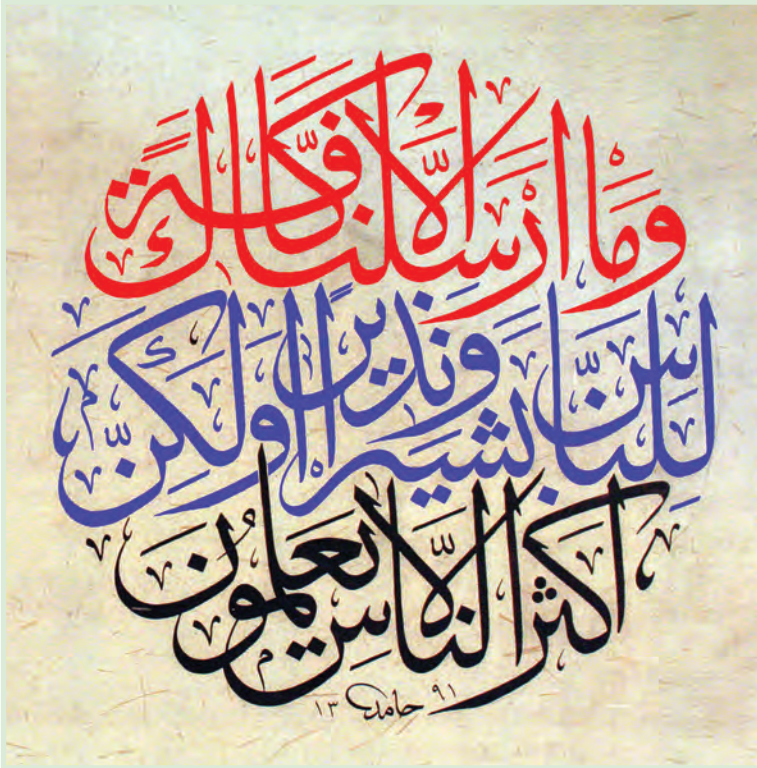 وَمَا اَرْسَلْنَاكَ اِلَّا كَافَّةً
لِلنَّاسِ بَشِيرًا وَنَذِيرًا وَلَكِنَّ
اَكْثَرَ النَّاسِ لَا يَعْلَمُونَ
١٣ حامد ٩١